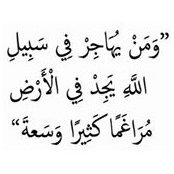 ”وَمَنْ يُهَاجِرْ فِي سَبِيلِ
اللَّهِ يَجِدْ فِي الْأَرْضِ
مُرَاغَمًا كَثِيرًا وَسَعَةً“